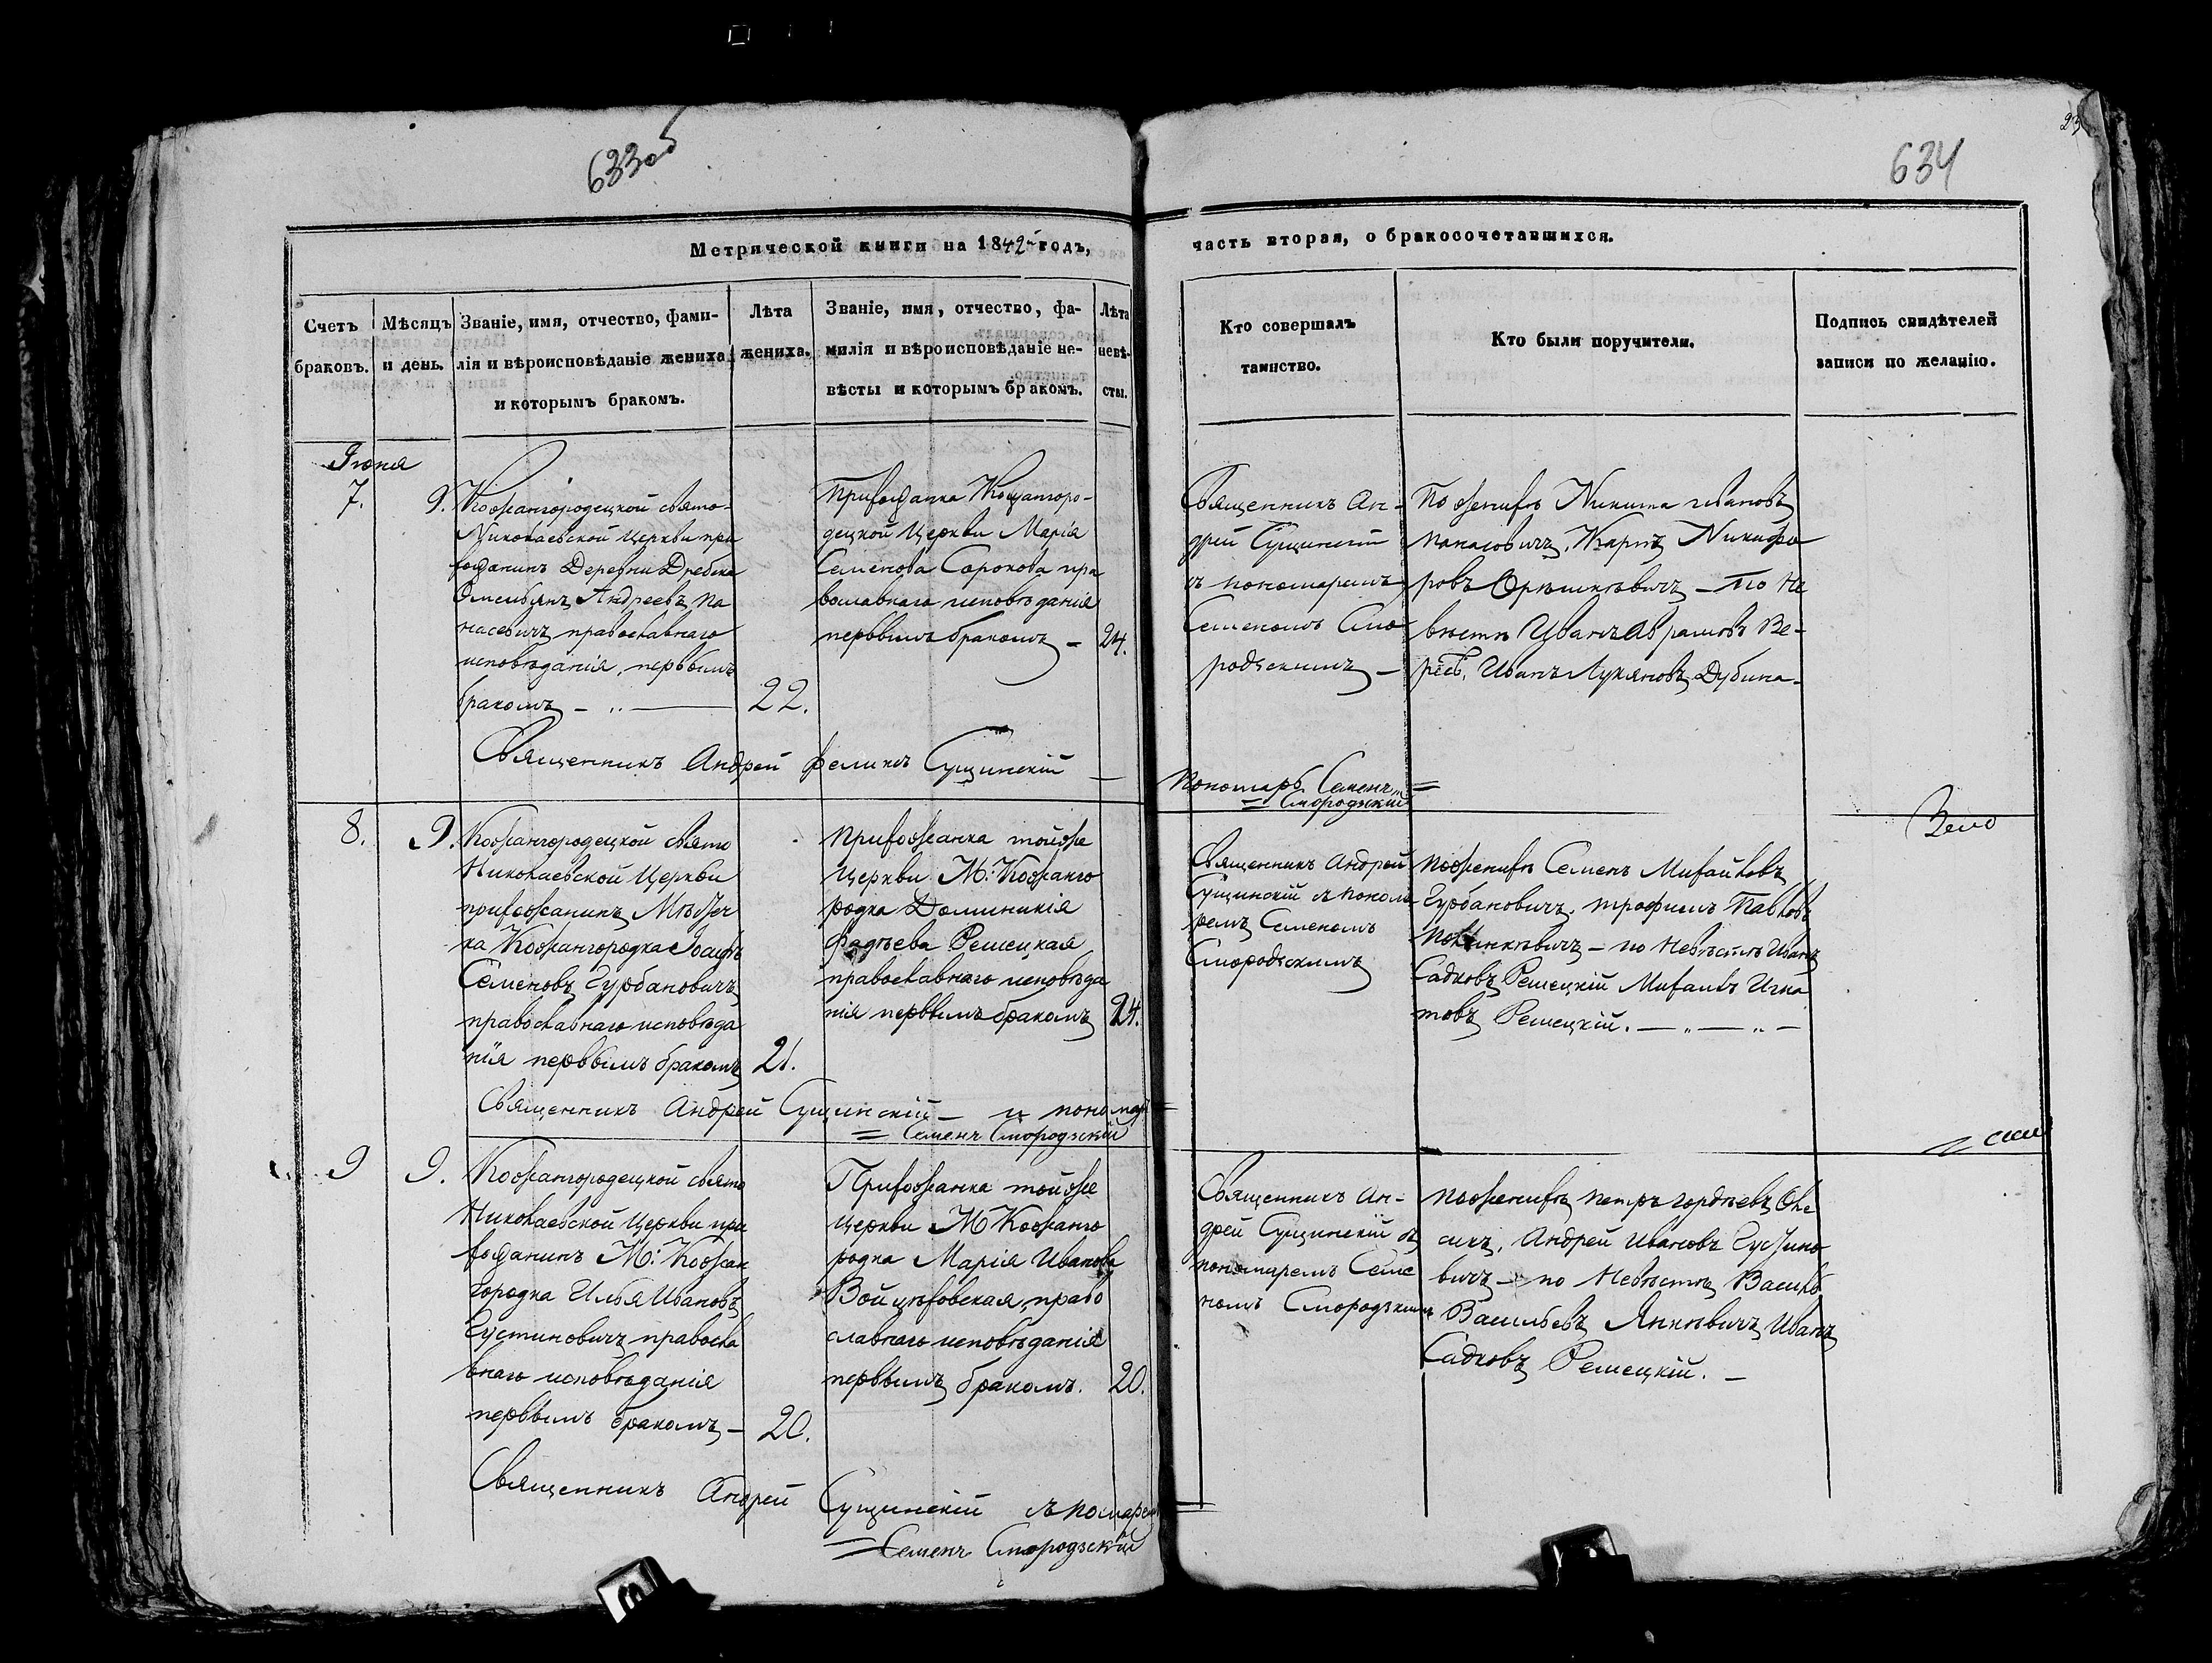 633об
634
23
Метрической книги на 1842 годъ,
часть вторая, о бракосочетавшихся.
Счетъ
браковъ.
Мѣсяцъ
и день.
Званіе, имя, отчество, фами-
лія и вѣроисповѣданіе жениха
и которымъ бракомъ.
Лѣта
жениха.
Званіе, имя, отчество, фа-
милія и вѣроисповѣданіе не-
вѣсты и которымъ бракомъ.
Лѣта
невѣ-
сты.
Кто совершалъ
таинство.
Кто были поручители.
Подпись свидѣтелей
записи по желанію.
Июня
7.
9.
Кожангородецкой Свято-
Николаевской Церкви при
хожанинъ Деревни Дребска
Омельянъ Андреевъ Па
насевичъ православнаго
исповѣданія, первымъ
бракомъ
22.
Прихожанка Кожангоро-
децкой Церкви Марія
Семенова Сорокова пра
вославнаго исповѣданія
первымъ бракомъ
24.
Священникъ Ан-
дрей Сущинскій
съ пономаремъ
Семеномъ Смо
родзскимъ
По женихѣ Никита Ивановъ
Панасовичъ, Карпъ Никифо
ровъ - По не
вѣсти Иванъ Аврамовъ Ве-
ресъ, Иванъ Лукяновъ Дубина
Священникъ Андрей Сущинскій
Пономарь Семенъ
Смородзскій
8.
9.
Кожангородецкой Свято
Николаевской Церкви
прихожанинъ Мѣстеч
ка Кожангородка
Семеновъ Гурбановичъ
православнаго исповѣда
нія первымъ бракомъ
21.
прихожанка тойже
Церкви М: Кожанго
родка Доминикія
Фадѣева Решецкая
православнаго исповѣда
нія первымъ бракомъ
24.
Священникъ Андрей
Сущинскій съ понома
ремъ Семеномъ
Смородзскимъ
По женихѣ Семенъ Михайловъ
Гурбановичъ, Трофимъ Павловъ
- по Невѣстѣ Иванъ
Садковъ Решецкій Михаилъ Игна
товъ Решецкій.
Священникъ Андрей Сущинскій и пономарь
Семенъ Смородзскій
9
9.
Кожангородецкой Свято
Николаевской Церкви при
хожанинъ М: Кожан
городка Илья Ивановъ
Густиновичъ правосла
внаго исповѣданія
первымъ бракомъ
20.
Прихожанка тойже
Церкви М Кожанго
родка Марія Иванова
Войцѣховская, право
славнаго исповѣданія
первымъ бракомъ.
20.
Священникъ Ан-
дрей Сущинскій съ
пономаремъ Семе
номъ Смородзкимъ
По женихѣ Петръ Гордѣевъ Оле
сикъ, Андрей Ивановъ Густино
вичъ - по Невѣстѣ Василь
Васильевъ Янкѣвичъ Иванъ
Садковъ Решецкій.
Священникъ Андрей Сущинскій
Семенъ Смородзскій